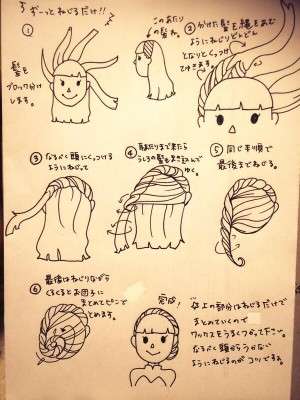 ずーっとねじるだけ!!
①
髪を
ブロック分け
します。
このあたり
の髪ね。
② 分けた髪を縄をあむ
ようにねじりどんどん
となりとくっつけ
てゆきます。
③ なるべく頭にくっつける
ようにねじって
④ 耳あたりまで来たら
うしろの髪もまき込んで
ゆく。
⑤ 同じ手順で
最後までねじる。
⑥ 最後はねじりながら
くるくるとお団子に
まとめてピンで
とめます。
完成!
上の部分はねじるだけで
まとめていくので
ワックスをうまくつかって下さい。
なるべく頭からうかない
ようにねじるのがコツですね。